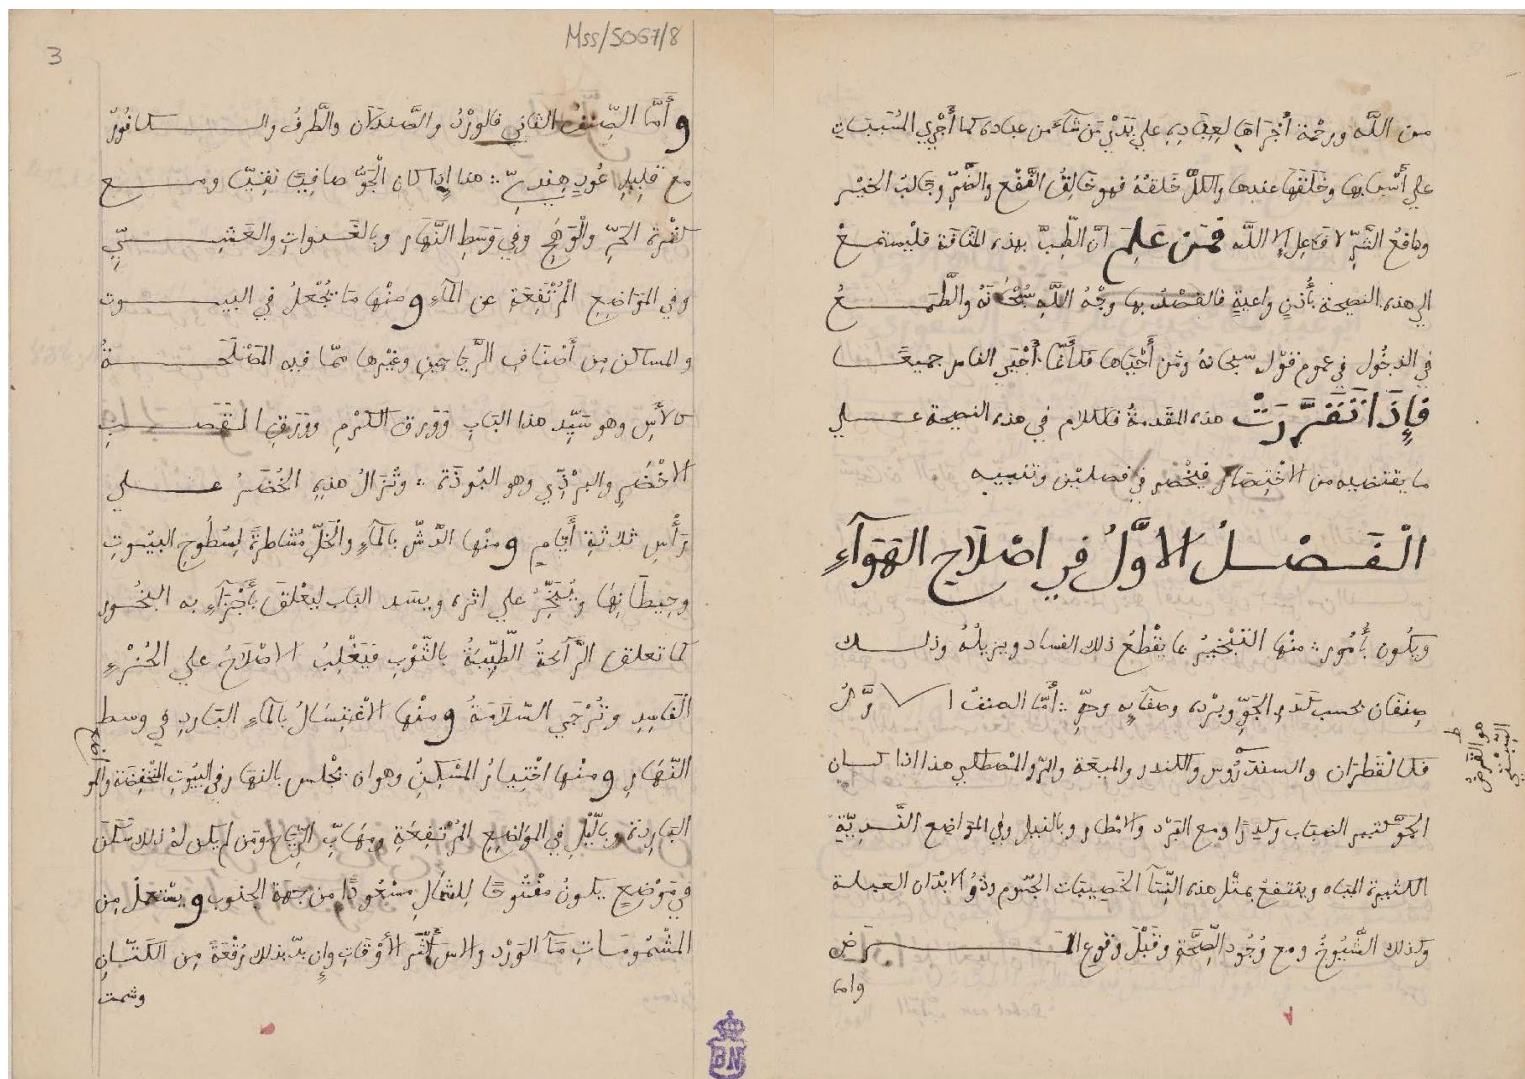 من اللَّه ورحْمة أَجْرَاهَا لعِبَادِهِ علي يَدَيْ مَن شآءَ من عباده كما أَجْرَي المُسَبَّبَاتِ
علي أَسْبابها وخَلَقَهَا عندها والكلُّ خَلقهُ فهو خَالِقُ النَّفْع والضَّرِّ وجَالبُ الخيْر
ودافعُ الشَّرِّ لا فَاعِل إلا اللَّه فَمَن عَلِمَ انَّ الطِّبَّ بهذه المثَابَة فليْستمعْ
الي هذه النصيحة بأُذنٍ واعيةٍ فالقصْدُ بها وجْهُ اللَّهِ سُبْحَانَهُ والطَّمَعُ
في الدخُول في عموم قوْل سبحانهُ ومَن أَحْيَاهَا فكأَنَّمَا أَحْيَي الناس جميعًا
فإِذَا تَقَرَّرَتْ هذه المقَدمةُ فالكلام في هذه النصيحة علي
ما يقتضيه من الاخْتِصَار فينْحَصر في فصليْن وتنبيه
الْفَصْلُ الاوَّلُ في اصْلَاحِ الهَوَآءِ
ويكُون بأُمُور: منْها التَبْخيرُ بما يقْطَعُ ذلك الفساد ويزيلُهُ وذلك
صِنفَان بحسب كدَرِ الجَوِّ وبرْده وصفآيِه وحرِّه: أَمَّا الصنفُ الاوَّلُ
فكالقَطِرَان والسندَرُوس والكندر والميعَة والمرّ والمصْطكي هذا اذا كان
الجَوّ كثير الضبَاب وكدِرًا ومع البَرْد والامْطَار وبالليل وفي المَوَاضع النَّدِيَّةِ
الكثيرة المياه وينتفعُ بمثْل هذه النِّسَآ الخَصِيبَات الجُسُوم وذوُ الابْدَان العبلة
وكذلك الشُّيُوخُ ومع وُجُود الصِّحَّةِ وقَبْلَ وقوع المَرَض
وامّا
هو القرض
Mss/5067/8
3
وأَمَّا الصِّنفُ الثاني فالورْدُ والصَّندَلان والطَّرفُ والكافُورُ
مع قليلِ عُودٍ هِنديّ: هذا إذا كان الجَوُّ صافيًا نقيًّا ومع
كثْرة الحَرِّ والْوَهَجِ وفي وَسَطِ النَّهَار وبالغَدواتِ والعَشيِّ
وفي المَوَاضِعِ الْمُرْتَفِعَةِ عن المآءِ ومنْها مَا يُجْعلُ في البيوت
والمساكن مِن أَصْنَافِ الرَّيَاحِينِ وغيْرها ممّا فيه المَصْلَحَةُ
كالآسِ وهو سَيِّد هذا البَابِ وَوَرَق الكَرْمِ ووَرَقِ القَصَبِ
الاخْضَرِ والبرْدِّي وهو البُوذَة: وتُزَالُ هذهِ الخُضَرُ علي
رَأْسِ ثلاثَةِ أَيَّامٍ ومنْها الرَّشّ بالمَآءِ والْخَلِّ مُشَاطرةً لِسُطُوحِ البيُوتِ
وحِيطَانِهَا ويُبَخَّرُ علي اثره ويسَد الباب ليعْلقَ بأَجْزَآءِ به البخُور
كما تعلق الرَّآئحةُ الطَّيِّبَةُ بالثَّوْبِ فيَغْلِبُ الاصْلَاحُ علي الجُزْءِ
الْفَاسِدِ وتُرْجَي السّلَامَةُ ومنْها الاغْتِسَالُ بالمَآءِ البَاردِ في وسط
النَّهَارِ ومنْها اخْتِيارُ المَسْكنِ وهو ان يجْلس بالنهَار في البيُوتِ المُنْخفِضَة والْهوآ
البَارِدَة وبالّليْلِ في المَوَاضِعِ الْمُرْتَفِعَةِ ومَهَابِّ الرِّيَاحِ ومَن لم يكن لهُ ذلك سَكَنَ
في مَوْضِعٍ يكونُ مفْتُوحًا للشمَالِ مسْدُودًا من جهة الجنوب ويسْتعملُ مِن
المشْمُومَاتِ مَآ الوَرْد والاس أَكْثَر الأوْقَاتِ وإن بلَّ بذلك رُقْعَةً مِن الكَتّانِ
وشمت
BN